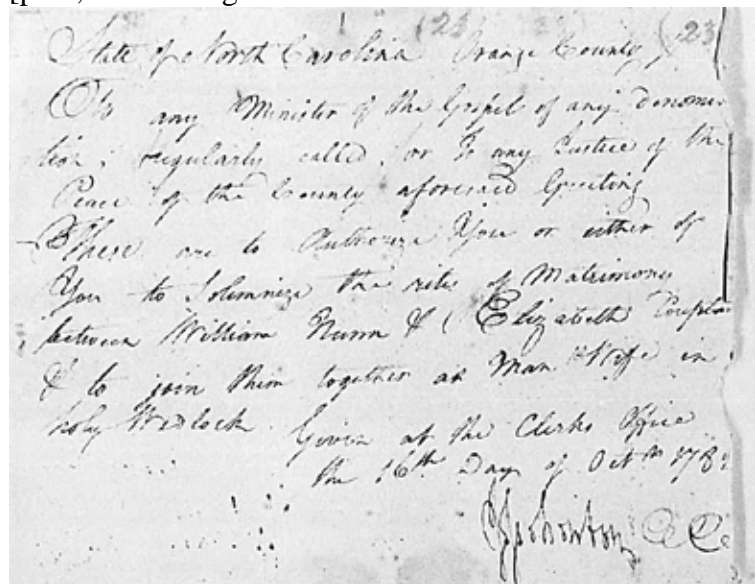 (23 23
State of North Carolina Orange County,
To any Minister of the Gospel of any Denomi-
tion, regularly called, or to any Justice of the
Peace of the County aforesaid Greeting
These are to Authorize You or either of
You to Solemnize the rites of Matrimony
between William Nunn & Elizabeth
& to join them together as Man & Wife in
holy Wedlock. Given at the Clerks Office
the 16th Day of Octr 178